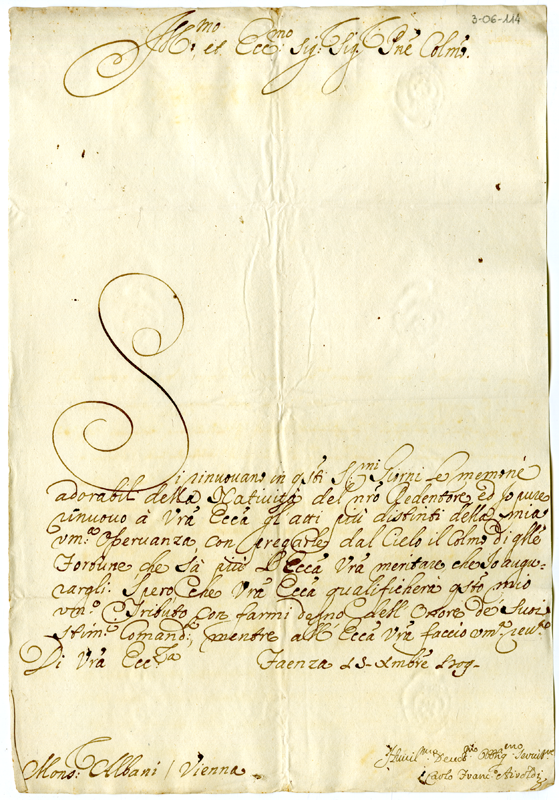 3-06-114
Ill.mo et Ecc.mo Sig.r Sig.r Pñe Colmo.
Si rinuovano in qsti SS.mi Giorni le memorie
adorabili della Natività del nrõ Redentore, ed Io pure
rinuovo à Vrã Eccã gl'atti più distinti della mia
um.a osservanza, con pregarle dal Cielo il Colmo di qlle
Fortune, che sà più l'Eccã Vrã meritare che Io augu-
rargli. Spero che Vrã Eccã qualificherà qsto mio
um.o Tributo con farmi degno dell'Onore de Suoi
stim.i Comandi, mentre all'Eccã Vrã faccio um.a reu.za
Di Vrã Ecc.za Faenza 15 Xmbre 1709
Mons.r Albani / Vienna
Humil.mo Deuot.mo Obblig.mo Seruit.re
Carlo Franc.o